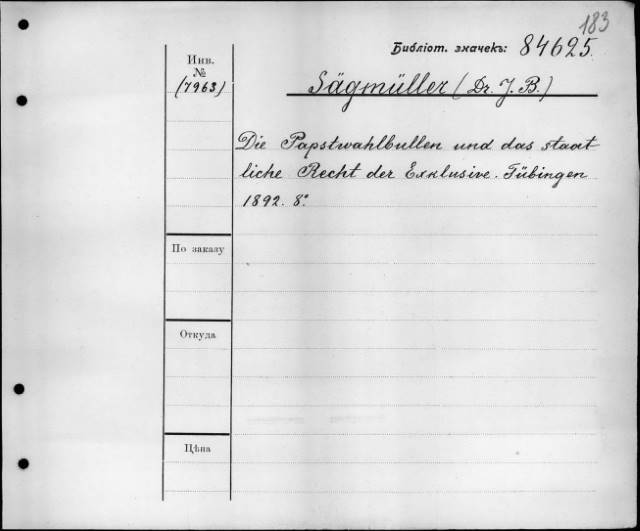 183
Библіот. значекъ: 84625.
Инв.
№
(7963)
Sägmüller (Dr. J. B.)
Die Papstwahlbullen und das staat
liche Recht der Exklusive. Tübingen
1892. 8°
По заказу
Откуда
Цѣна